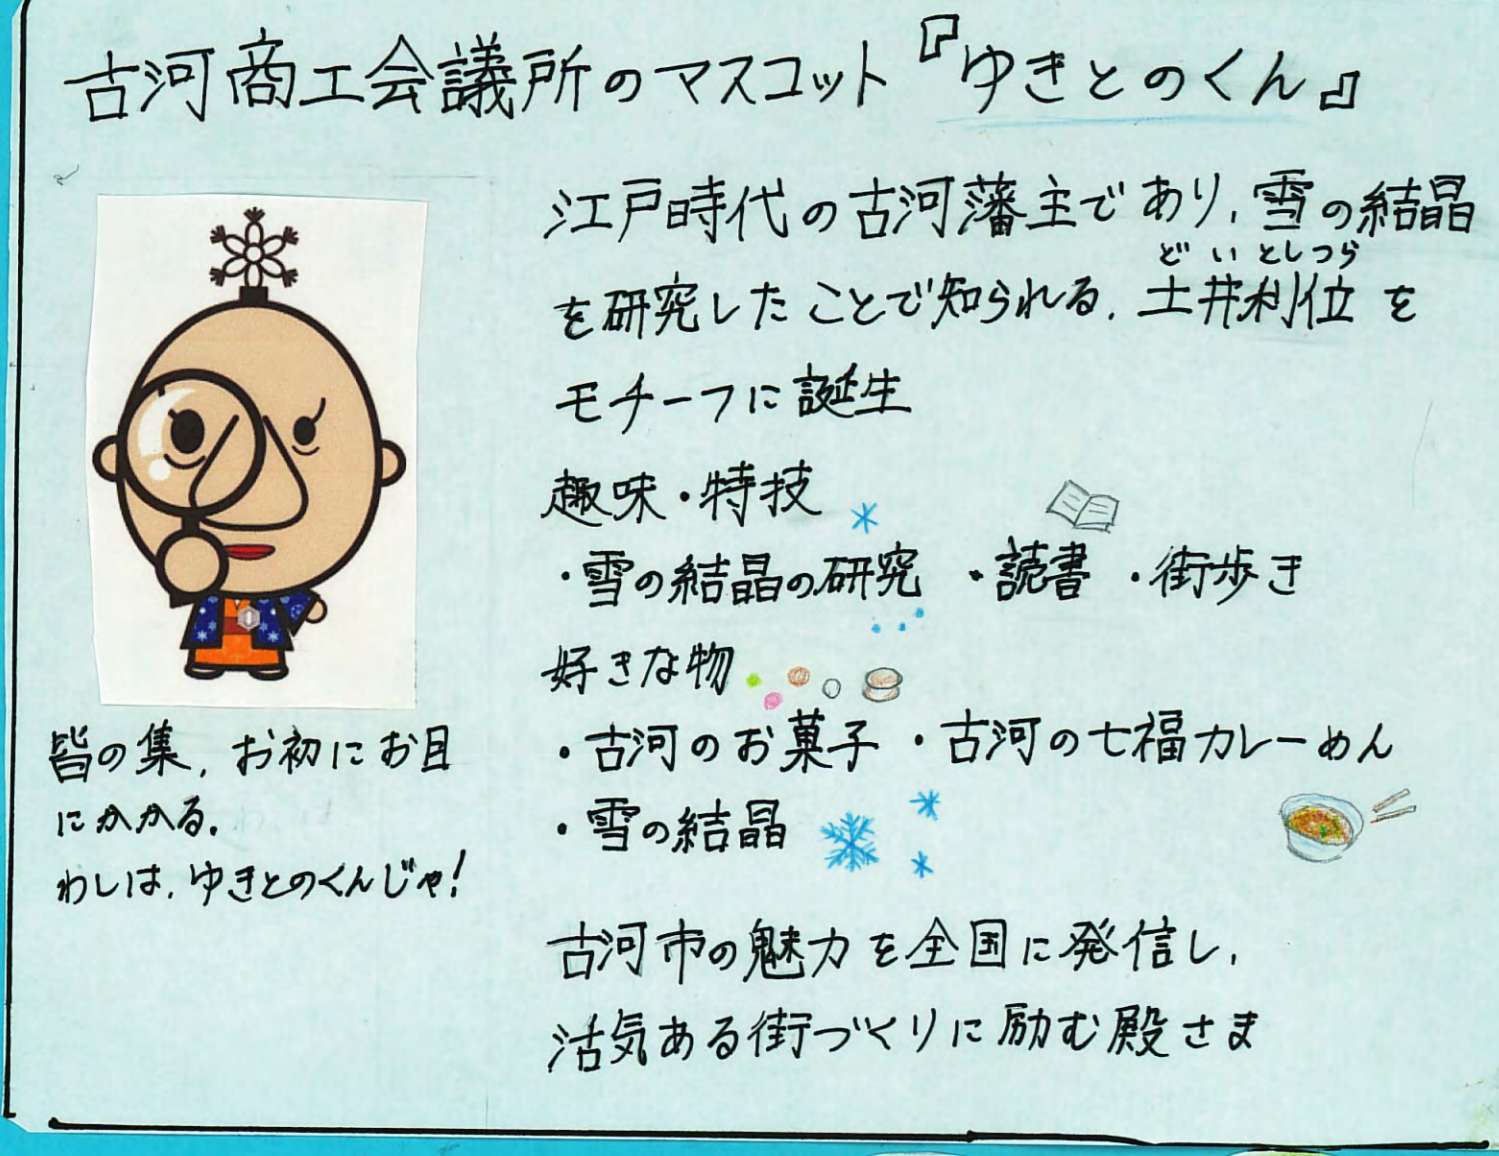 古河商工会議所のマスコット『ゆきとのくん』
江戸時代の古河藩主であり、雪の結晶
どいとしつら
を研究したことで知られる、土井利位を
モチーフに誕生
趣味・特技
・雪の結晶の研究 ・読書 ・街歩き
好きな物
・古河のお菓子 ・古河の七福カレーめん
・雪の結晶
古河市の魅力を全国に発信し、
活気ある街づくりに励む殿さま
皆の集、お初にお目
にかかる。
わしは、ゆきとのくんじゃ！